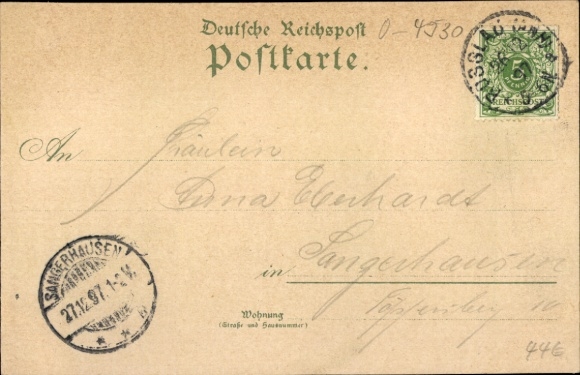 Deutsche Reichspost
0-4530
Postkarte.
ROSSLAU (ANH.)
5
REICHSPOST
An Fräulein
Erna Eberhardt
in Sangerhausen
Wohnung
(Straße und Hausnummer)
SANGERHAUSEN
27.12.97. 1-2 N.
44E